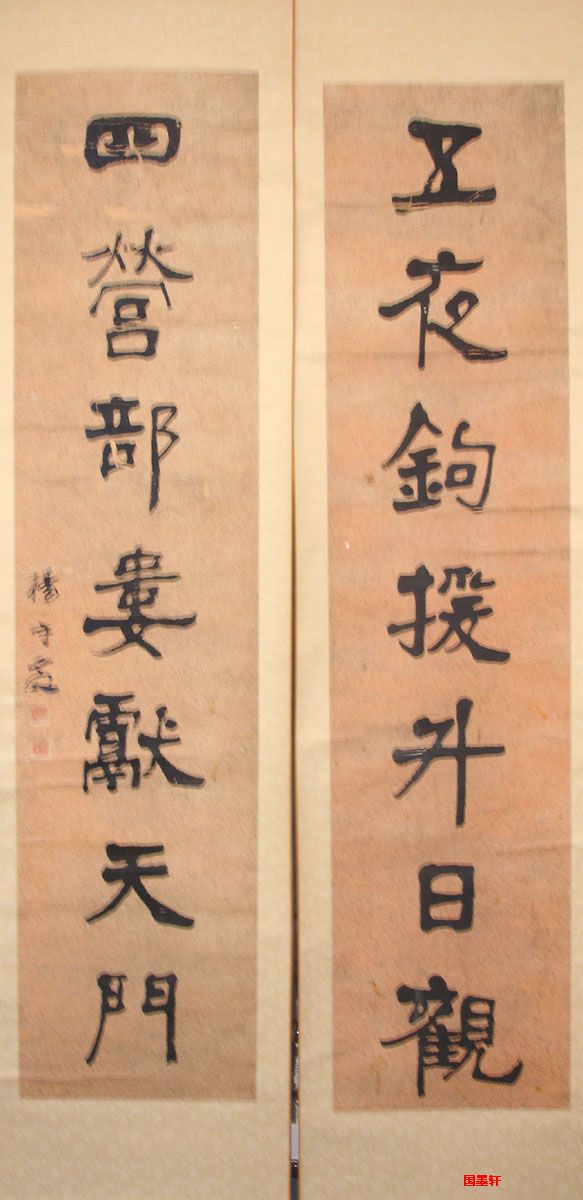 五夜鉤援升日觀
四營部婁獻天門
楊守敬
国墨轩